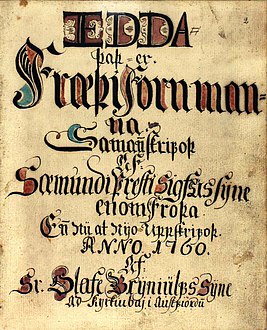 EDDA
2
þaþ-er.
Fræþi fórn man-
na.
Samanstripoþ
Af.
Sæmundi Presti Sigfús Syne
enom Froþa
En Nú at Nýo Uppstripoþ.
ANNO. 1760.
Af
Sr. Olafe Bryniúlfs Syne
Ad Kyrkiubæ i Austfiördu